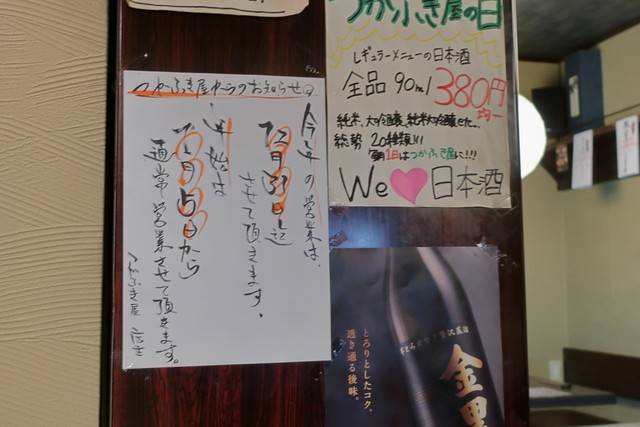 つかふき屋からのお知らせ
今年の営業は、
12月31日迄
させて頂きます。
年始は
1月5日から
通常営業させて頂きます。
つかふき屋 店主
つかふき屋の日
レギュラーメニューの日本酒
全品 90ml 380円
均一
純米、大吟醸、純米大吟醸 etc...
総勢 20種類!!!
毎月1日はつかふき屋に!!!
We♥日本酒
とろりとしたコク、
透き通る後味。
金黒